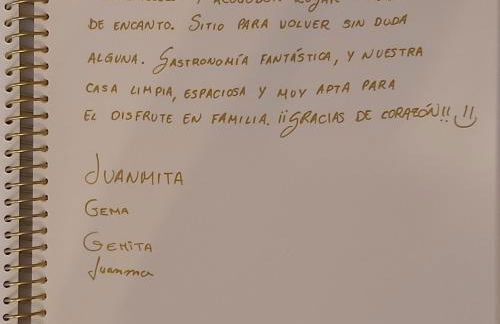 Y ACOGEDOR LUGAR
DE ENCANTO. SITIO PARA VOLVER SIN DUDA
ALGUNA. GASTRONOMÍA FANTÁSTICA, Y NUESTRA
CASA LIMPIA, ESPACIOSA Y MUY APTA PARA
EL DISFRUTE EN FAMILIA. ¡¡GRACIAS DE CORAZÓN!! :)
JUANMITA
GEMA
GEMITA
Juanma